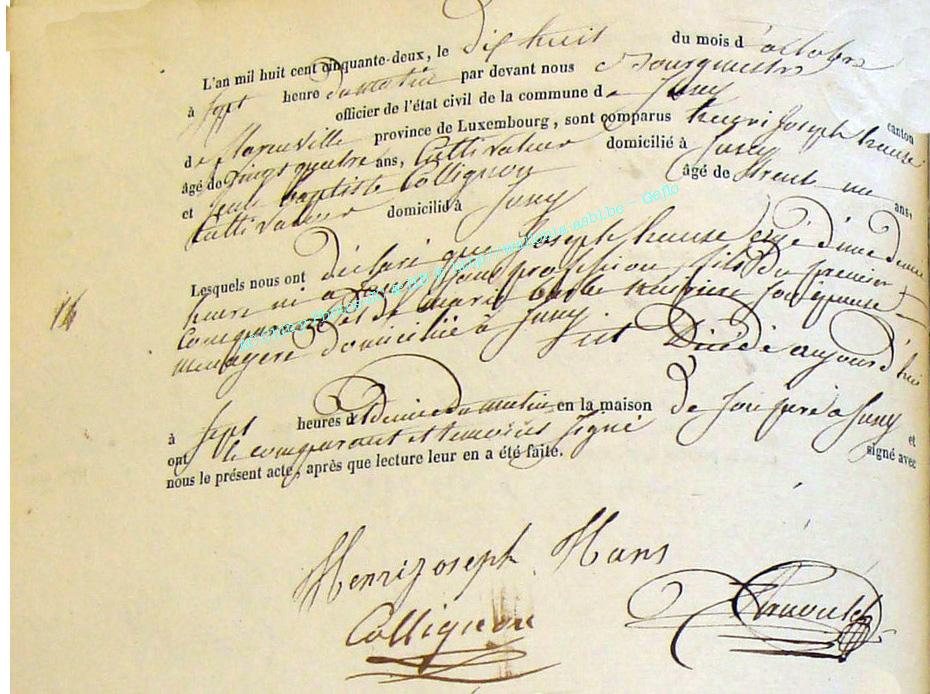 L'an mil huit cent cinquante-deux, le dix huit du mois d'octobre
à sept heure du matin par devant nous Bourgmestre
officier de l'état civil de la commune de Suxy canton
de florenville province de Luxembourg, sont comparus henri Joseph hansse
âgé de vingt quatre ans, Cultivateur domicilié à Suxy
et jean baptiste Collignon âgé de trent un ans,
Cultivateur domicilié à Suxy
Lesquels nous ont déclaré que Joseph hansse agé d'une demie
heure né à Suxy sans profession fils du premier
Comparant et de marie barbe son épouse
menagère domicilié à Suxy est Décédé aujourd'hui
à sept heures et demie du matin en la maison de son père à Suxy et
ont le comparant et temoins signé signé avec
nous le présent acte, après que lecture leur en a été faite.
16
Henri joseph Hans
Collignon